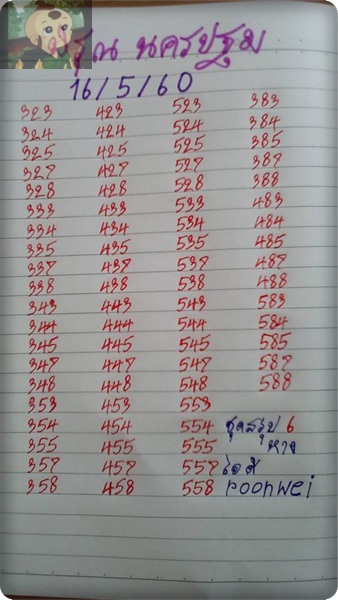 อรุณ นครปฐม
16/5/60
323 423 523 383
324 424 524 384
325 425 525 385
327 427 527 387
328 428 528 388
333 433 533 483
334 434 534 484
335 435 535 485
337 437 537 487
338 438 538 488
343 443 543 583
344 444 544 584
345 445 545 585
347 447 547 587
348 448 548 588
353 453 553
354 454 554 ชุดสรุป 6
355 455 555 หาง
357 457 557 ไอดี
358 458 558 poonwei